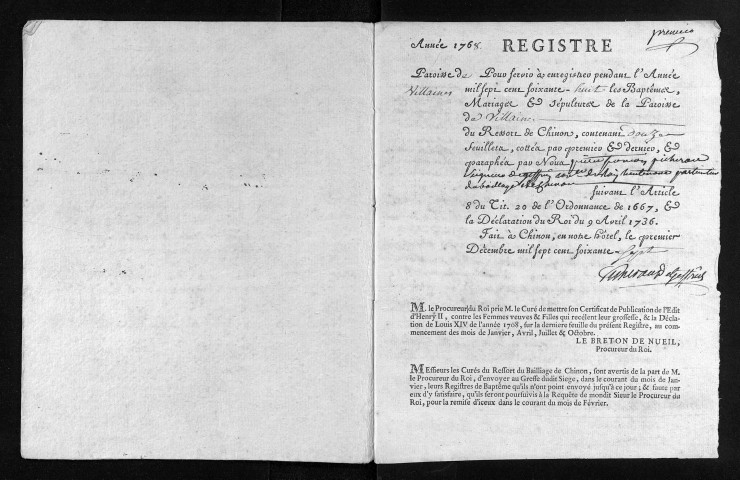 premier
Année 1768. REGISTRE
Paroisse de Pour servir à enregistrer pendant l'Année
Villaines mil sept cent soixante-huit les Baptêmes,
Mariages & Sépultures de la Paroisse
de Villaines
du Ressort de Chinon, contenant douze
feuillets, cottés par premier & dernier, &
paraphés par Nous pierre françois picherau
Seigneur de geffrus con.er du Roy lieutenant particulier
du bailliage de Chinon suivant l'Article
8 du Tit. 20 de l'Ordonnance de 1667, &
la Déclaration du Roi du 9 Avril 1736.
Fait à Chinon, en notre hôtel, le premier
Décembre mil sept cent soixante-sept
M. le Procureur du Roi prie M. le Curé de mettre son Certificat de Publication de l'Edit
d'Henry II, contre les Femmes veuves & Filles qui recélent leur grossesse, & la Décla-
tion de Louis XIV de l'année 1708, sur la derniere feuille du présent Registre, au com-
mencement des mois de Janvier, Avril, Juillet & Octobre.
LE BRETON DE NUEIL,
Procureur du Roi.
Messieurs les Curés du Ressort du Bailliage de Chinon, sont avertis de la part de M.
le Procureur du Roi, d'envoyer au Greffe dudit Siege, dans le courant du mois de Jan-
vier, leurs Registres de Baptême qu'ils n'ont point envoyé jusqu'à ce jour; & faute par
eux d'y satisfaire, qu'ils seront poursuivis à la Requête de mondit Sieur le Procureur du
Roi, pour la remise d'iceux dans le courant du mois de Février.